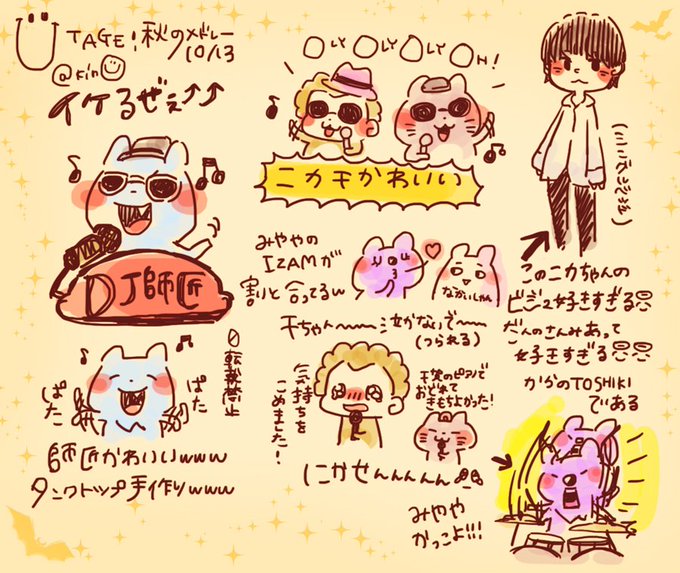 UTAGE!秋のメドレー
10/13
@kin
イケるぜぇ↑↑
OLY OLY OLY OH!
ニカキもかわいい
DJ師匠
ぱた
ぱた
師匠かわいいwww
タンクトップ手作りwww
転載禁止
みややの
IZAMが
割りと合ってるw
なかいしゃん
千ちゃん〜〜泣かないで〜
(つられる)
気持ちを
こめました!
天使のピアノで
おどれて
きもちよかった!
にかせんんんんん
このニカちゃんの
ビジュ好きすぎる
だんのさんみあって
好きすぎる
からのTOSHIKI
である
みやや
かっこよ!!!